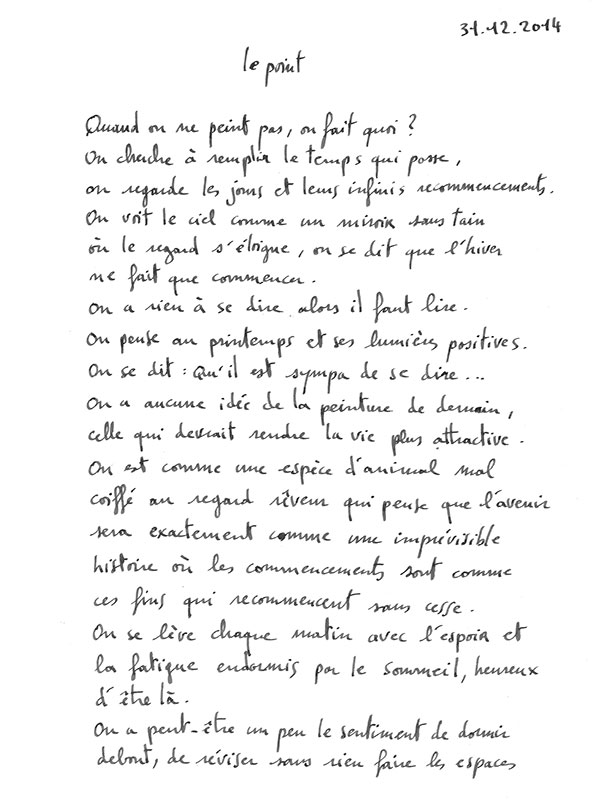 31.12.2014
le point
Quand on ne peint pas, on fait quoi ?
On cherche à remplir le temps qui passe,
on regarde les jours et leurs infinis recommencements.
On voit le ciel comme un miroir sans tain
où le regard s'éloigne, on se dit que l'hiver
ne fait que commencer.
On a rien à se dire alors il faut lire.
On pense au printemps et ses lumières positives.
On se dit : Qu'il est sympa de se dire...
On a aucune idée de la peinture de demain,
celle qui devrait rendre la vie plus attractive.
On est comme une espèce d'animal mal
coiffé au regard rêveur qui pense que l'avenir
sera exactement comme une imprévisible
histoire où les commencements sont comme
ces fins qui recommencent sans cesse.
On se lève chaque matin avec l'espoir et
la fatigue endormis par le sommeil, heureux
d'être là.
On a peut-être un peu le sentiment de dormir
debout, de réviser sans rien faire les espaces